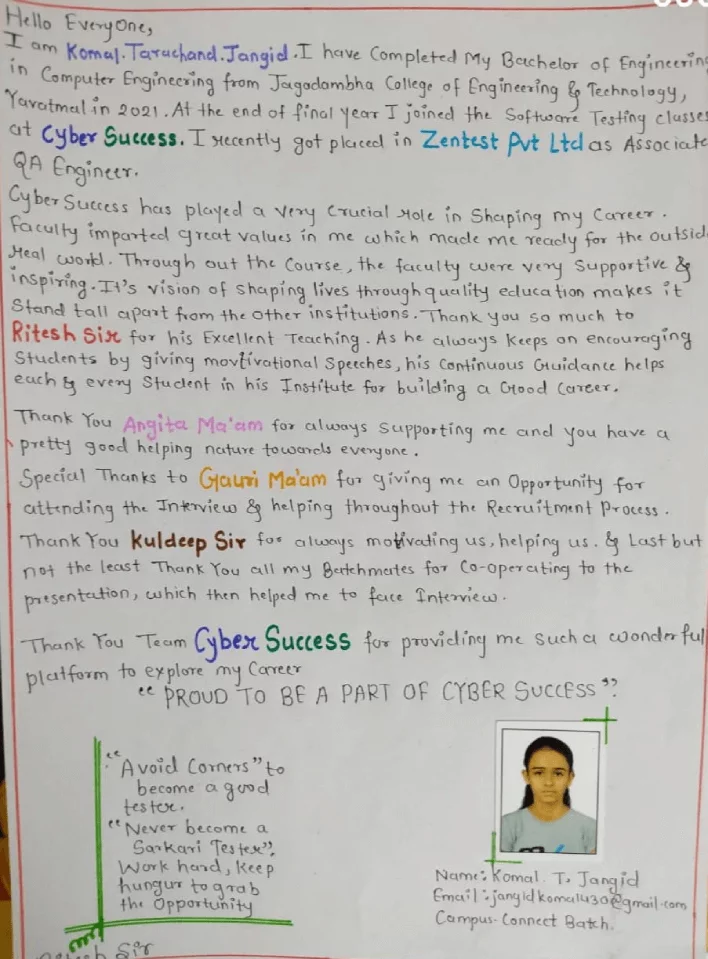 Hello EveryOne,
I am Komal.Tarachand.Jangid. I have Completed My Bachelor of Engineering
in Computer Engineering from Jagadambha College of Engineering & Technology,
Yavatmal in 2021. At the end of final year I joined the Software Testing classes
at Cyber Success. I recently got placed in Zentest Pvt Ltd as Associate
QA Engineer.
Cyber Success has played a very Crucial role in Shaping my Career.
Faculty imparted great values in me which made me ready for the outsid
real world. Through out the Course, the faculty were very Supportive &
inspiring. It's vision of shaping lives through quality education makes it
Stand tall apart from the other institutions. Thank you so much to
Ritesh Sir for his Excellent Teaching. As he always keeps on encouraging
Students by giving movtivational Speeches, his Continuous Guidance helps
each & every Student in his Institute for building a Good Career.
Thank You Angita Ma'am for always supporting me and you have a
pretty good helping nature towards everyone.
Special Thanks to Gauri Ma'am for giving me an Opportunity for
attending the Interview & helping throughout the Recruitment Process.
Thank You Kuldeep Sir for always motivating us, helping us. & Last but
not the least Thank You all my Batchmates for Co-operating to the
presentation, which then helped me to face Interview.
Thank You Team Cyber Success for providing me such a wonderful
platform to explore my Career
"PROUD TO BE A PART OF CYBER SUCCESS".
"Avoid Corners" to
become a good
tester.
"Never become a
Sarkari Tester".
Work hard, keep
hungur to grab
the Opportunity
Sir
Name: Komal T. Jangid
Email: jangidkomal430@gmail.com
Campus-Connect Batch.